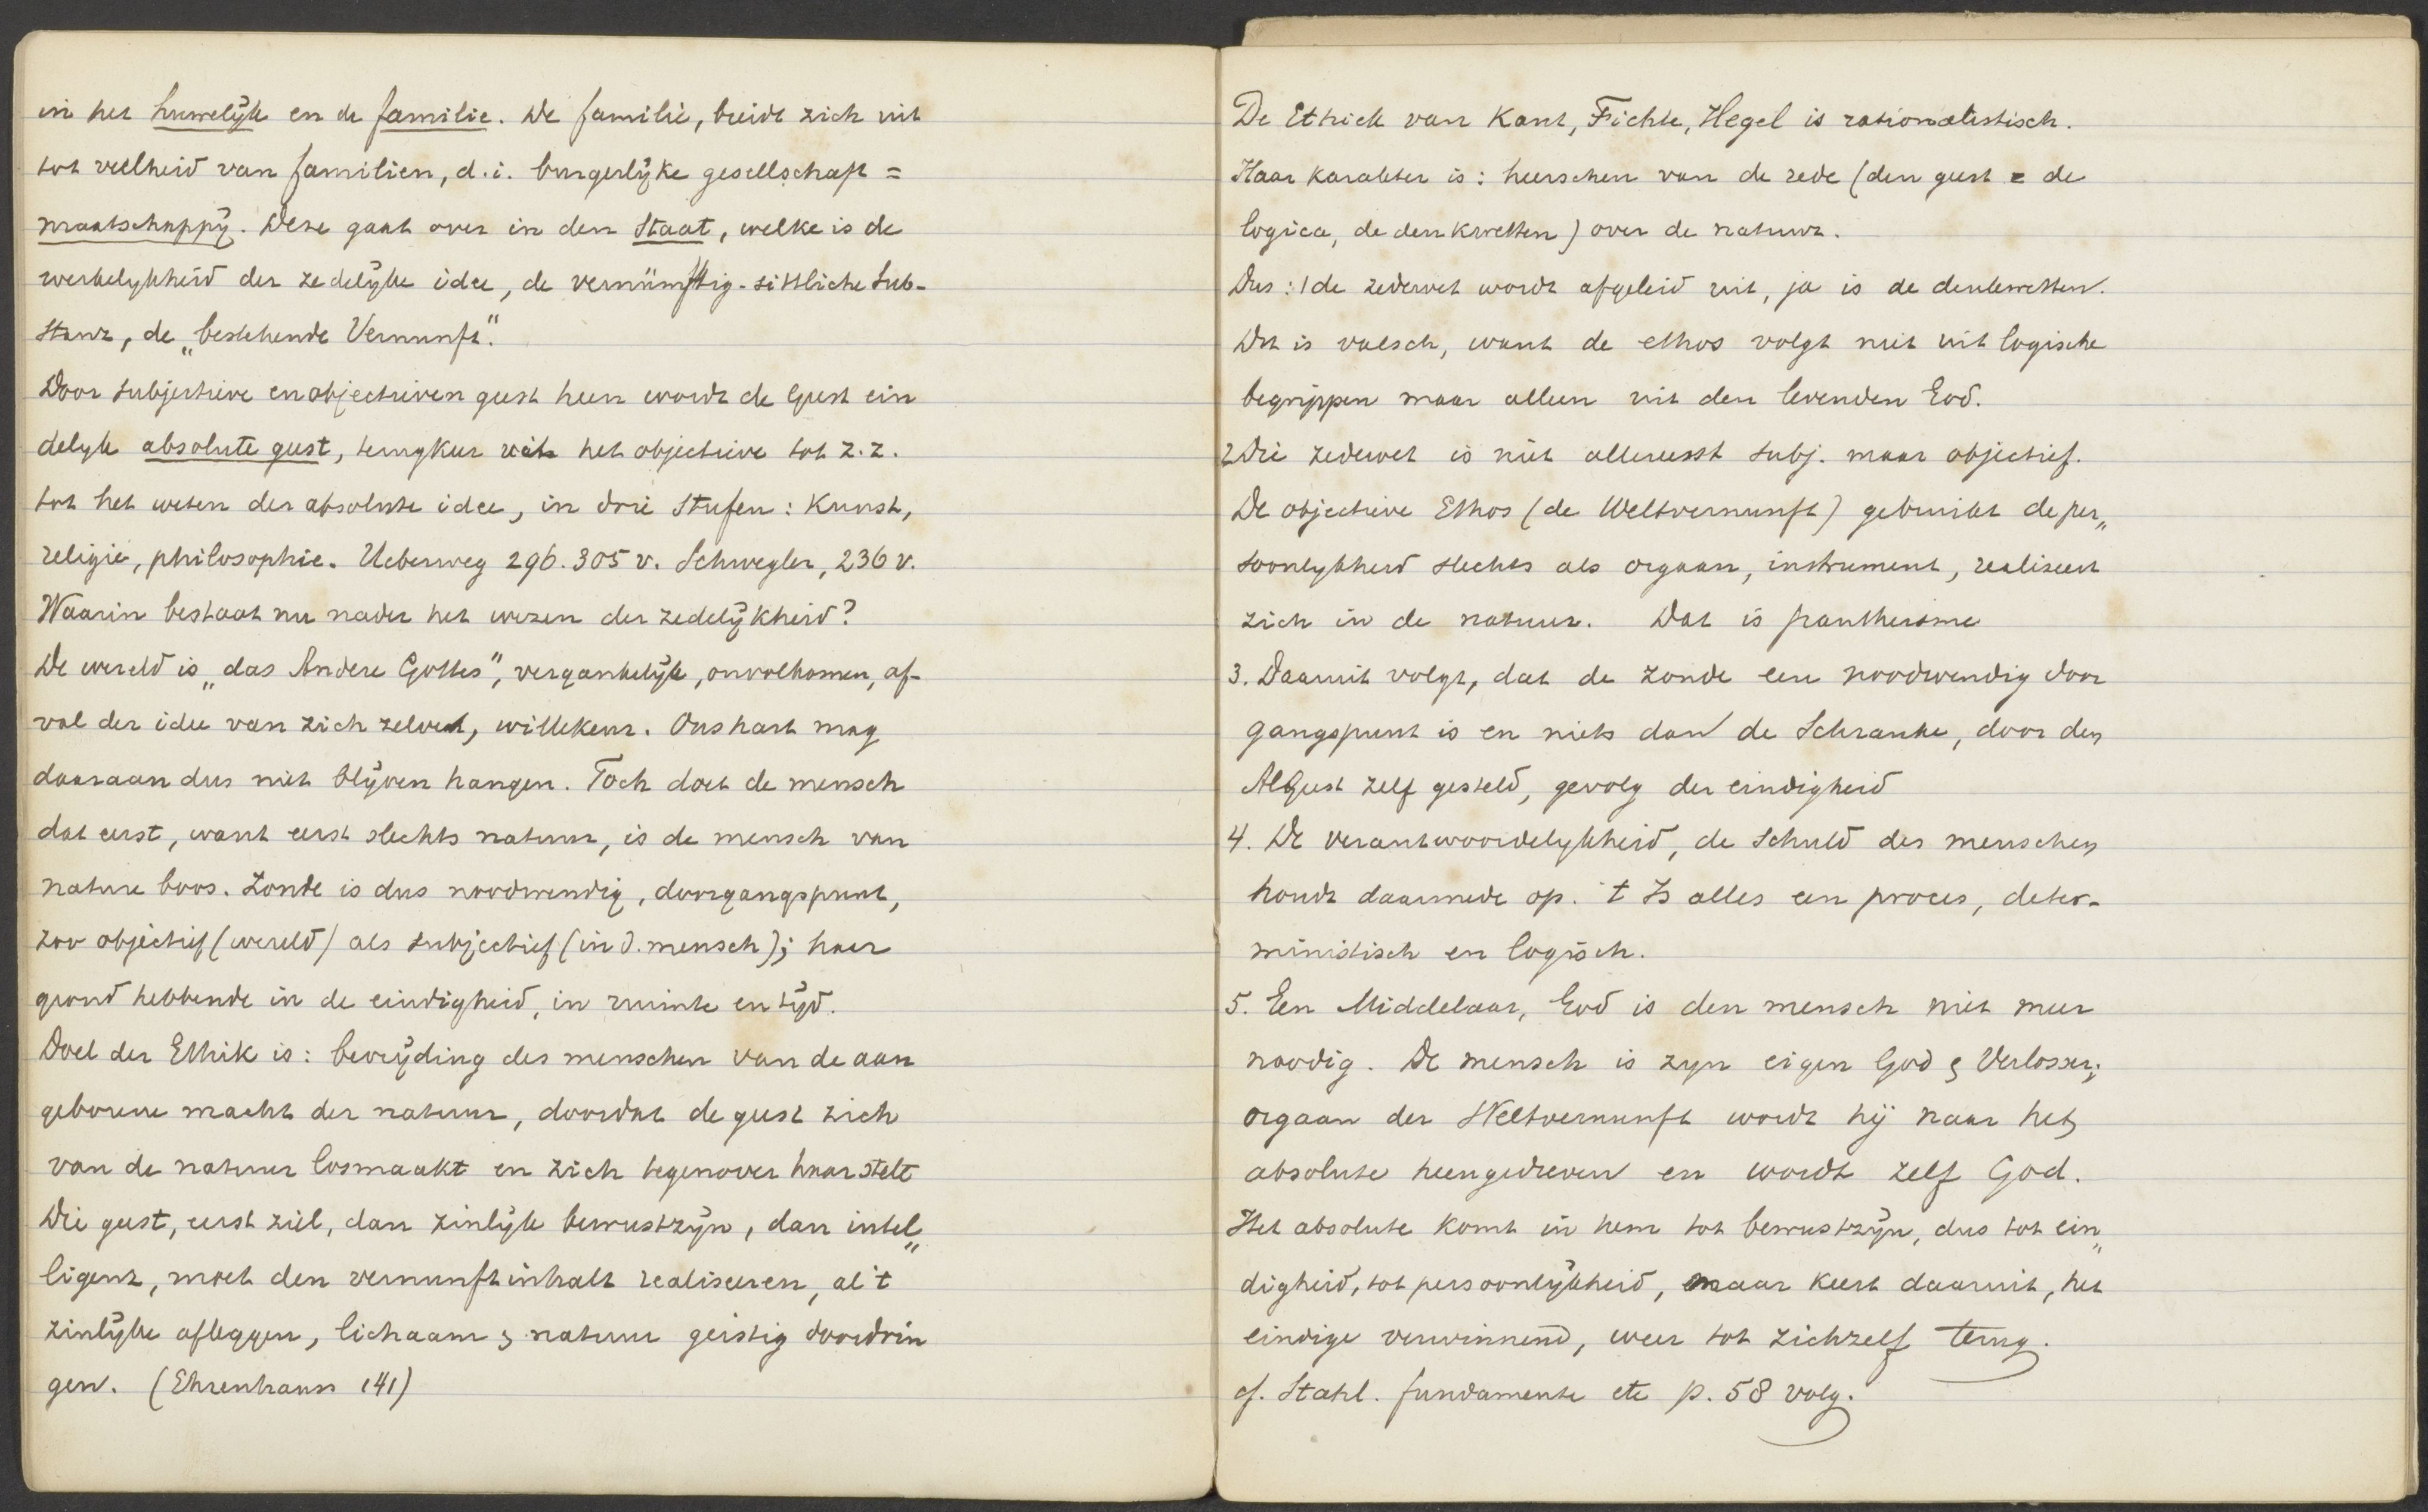 in het huwelijk en de familie. De familie, breidt zich uit
tot veelheid van familien, d.i. burgerlijke gesellschaft =
maatschappij. Deze gaat over in den Staat, welke is de
werkelykheid der zedelijke idee, de vernünftig-sittliche Sub-
stanz, de „bestehende Vernunft".
Door subjectieve en objectieven geest heen wordt de Geest ein
delyk absolute geest, terugkeer uit het objectieve tot z.z.
tot het weten der absolute idee, in drie Stufen: Kunst,
religie, philosophie. Ueberweg 296.305 v. Schwegler, 236 v.
Waarin bestaat nu nader het wezen der zedelijkheid?
De wereld is „das Andere Gottes", vergankelijk, onvolkomen, af-
val der idee van zich zelve, willekeur. Ons hart mag
daaraan dus niet blijven hangen. Toch doet de mensch
dat eerst, want eerst slechts natuur, is de mensch van
nature boos. Zonde is dus noodwendig, doorgangspunt,
zoo objectief (wereld) als subjectief (in d. mensch); haar
grond hebbende in de eindigheid, in ruimte en tijd.
Doel der Ethik is: bevrijding des menschen van de aan
geborene macht der natuur, doordat de geest zich
van de natuur losmaakt en zich tegenover haar stelt
Die geest, eerst ziel, dan zinlijk bewustzijn, dan intel„
ligent, moet den vernunftinhalt realiseeren, al 't
zinlijke afleggen, lichaam & natuur geistig doordrin
gen. (Ehrenhauss 141)
De Ethiek van Kant, Fichte, Hegel is rationalistisch.
Haar karakter is: heerschen van de rede (den geest = de
logica, de denkwetten) over de natuur.
Dus: 1 de zedewet wordt afgeleid uit, ja is de denkwetten.
Dit is valsch, want de ethos volgt niet uit logische
begrippen maar alleen uit den levenden God.
2 Die zedewet is niet allereerst subj. maar objectief.
De objectieve Ethos (de Weltvernunft) gebruikt de per„
soonlykheid slechts als orgaan, instrument, realiseert
zich in de natuur. Dat is pantheisme
3. Daaruit volgt, dat de zonde een noodwendig door
gangspunt is en niets dan de Schranke, door den
AlGeest zelf gesteld, gevolg der eindigheid
4. De verantwoordelykheid, de schuld des menschen
houdt daarmede op. 't Is alles een proces, deter-
ministisch en logisch.
5. Een Middelaar, God is den mensch niet meer
noodig. De mensch is zyn eigen God & Verlosser;
orgaan der Weltvernunft wordt hij naar het
absolute heengedreven en wordt zelf God.
Het absolute komt in hem tot bewustzijn, dus tot ein„
digheid, tot persoonlijkheid, maar keert daaruit, het
eindige verwinnend, weer tot zichzelf terug.
cf. Stahl. fundamente etc p. 58 volg.